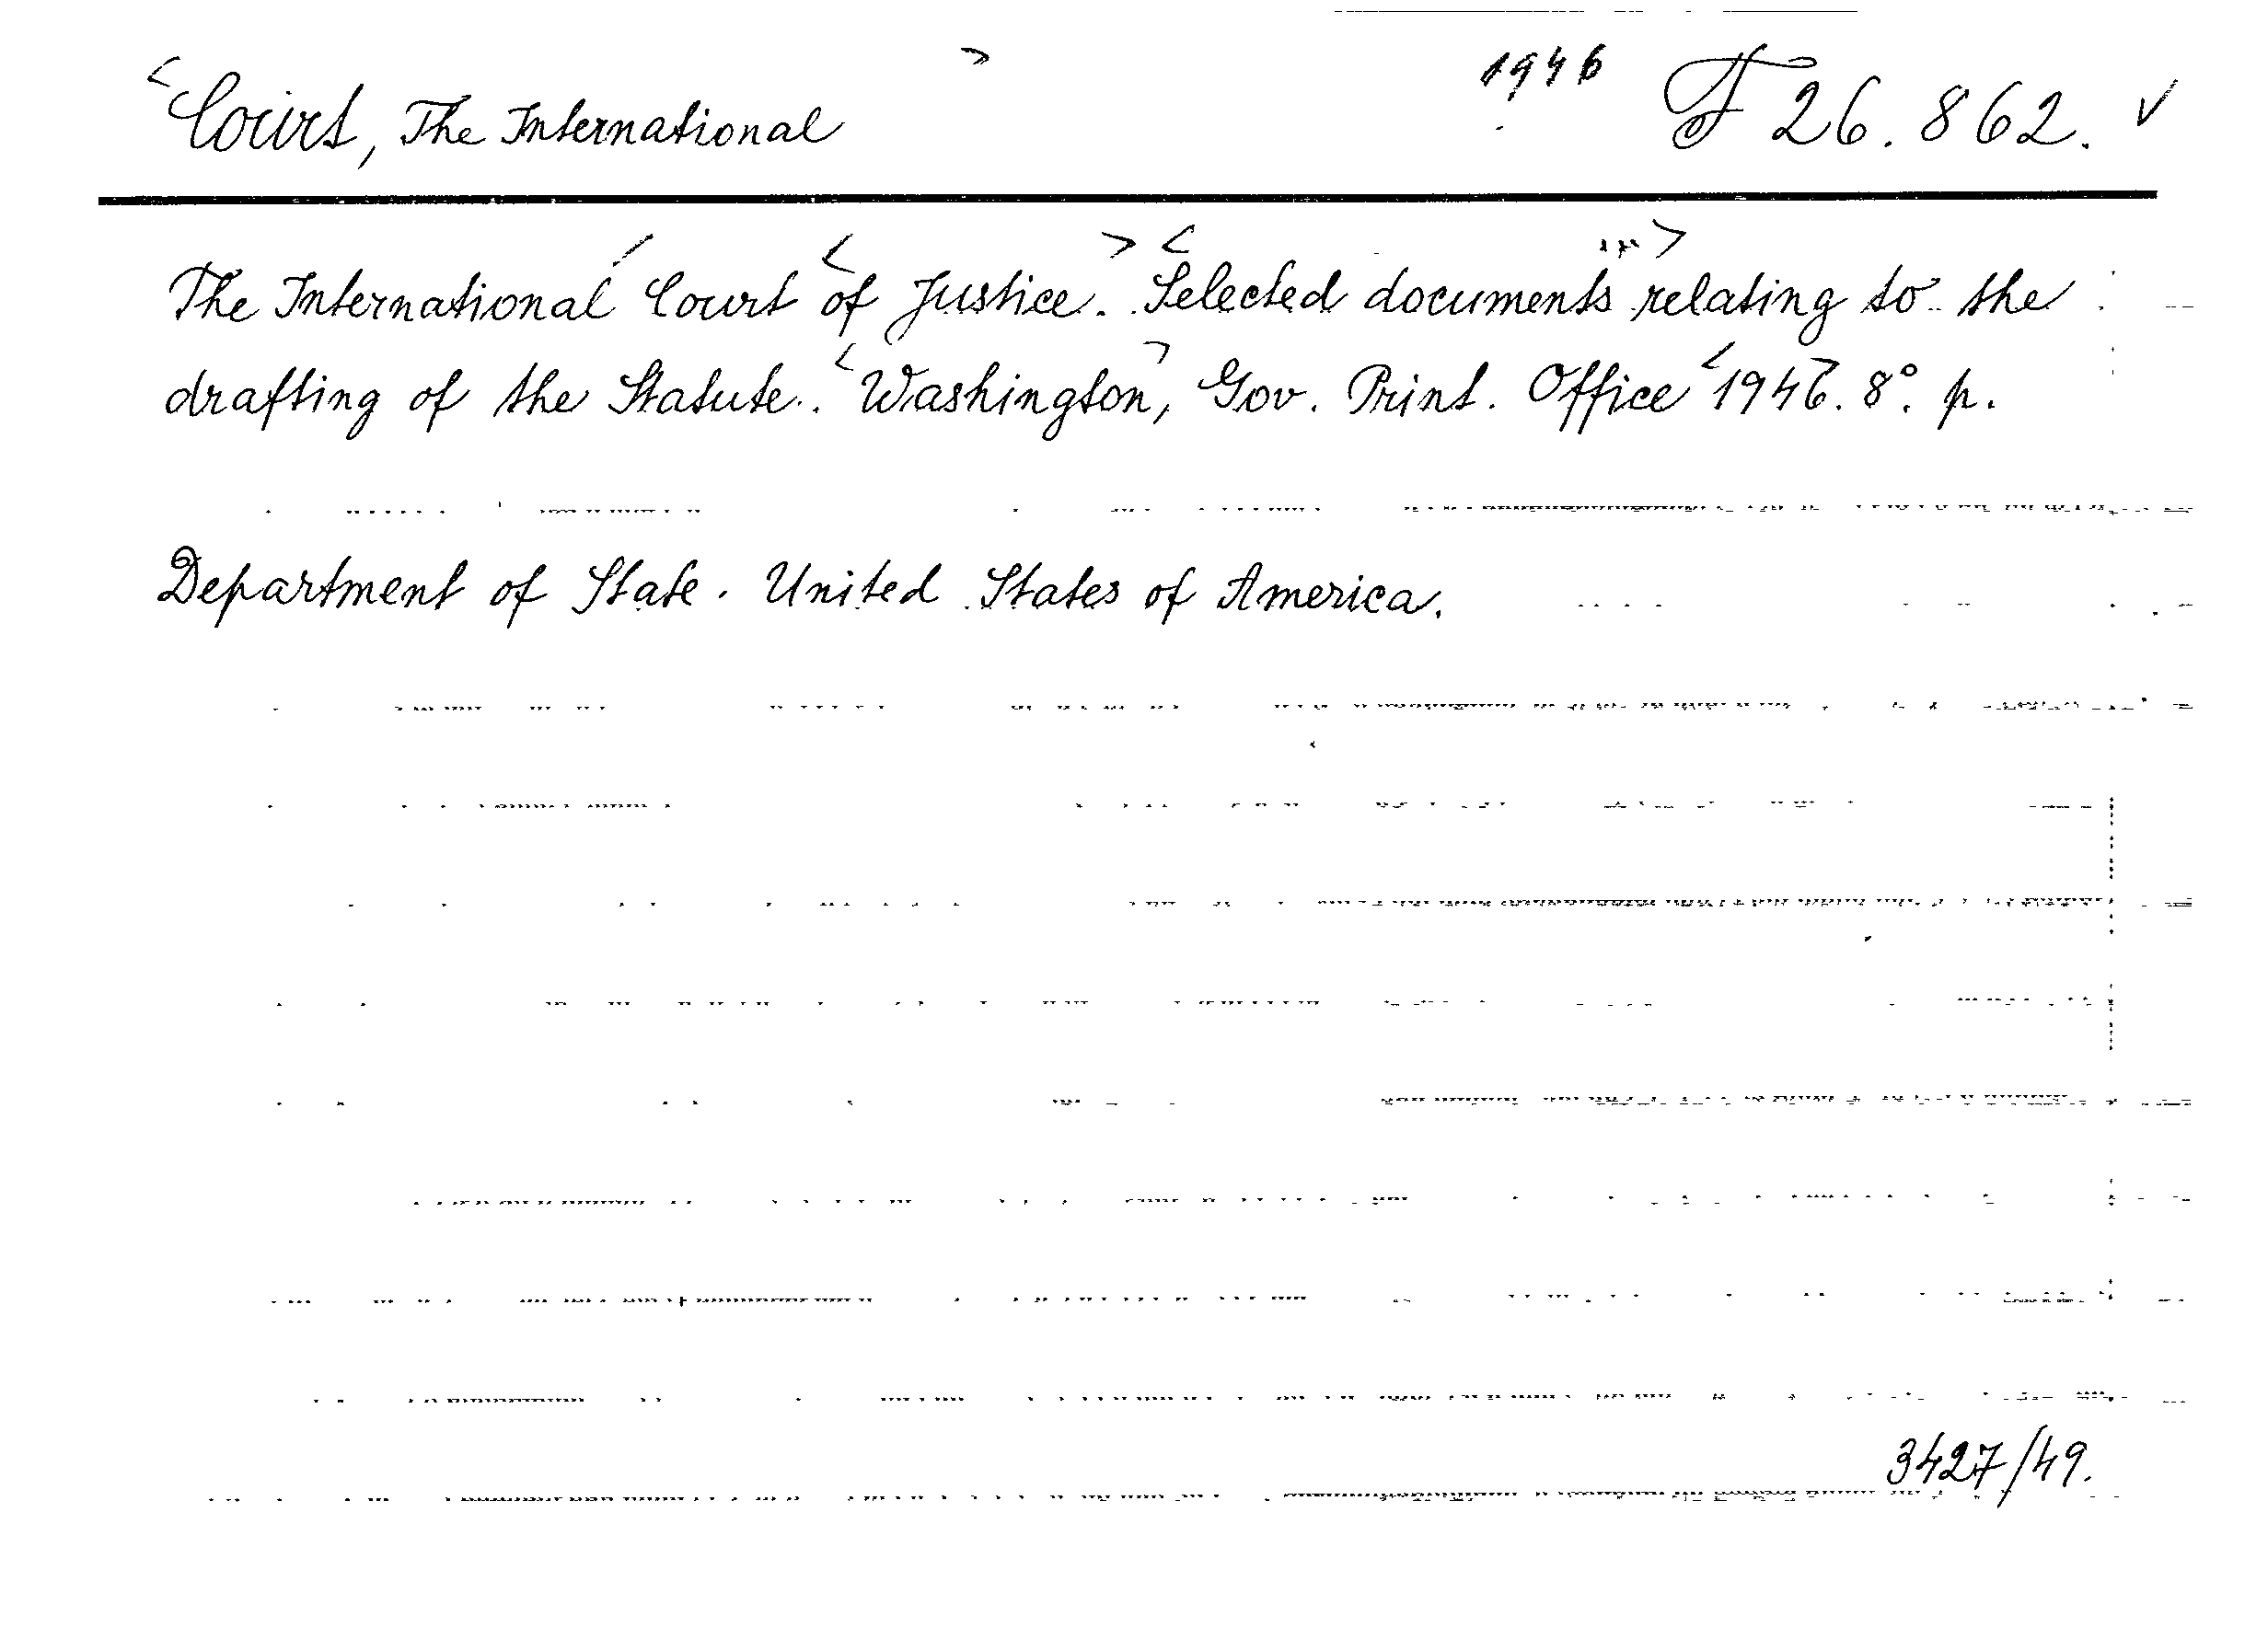 Court, The International 1946 F 26.862. ✓
The International Court of Justice. Selected documents relating to the
drafting of the Statute. Washington, Gov. Print. Office 1946. 8°. p.
Department of State. United States of America.
3427/49.